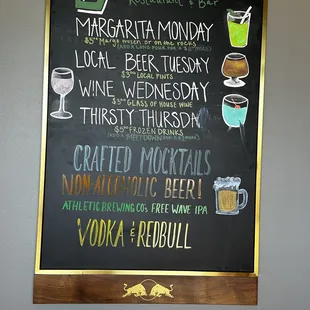 Restaurant & Bar
MARGARITA MONDAY
$5 Margs frozen or on the rocks
(ADD A LONG POUR FOR A $2 MORE)
LOCAL BEER TUESDAY
$3 LOCAL PINTS
WINE WEDNESDAY
$5 GLASS OF HOUSE WINE
THIRSTY THURSDAY
$5 FROZEN DRINKS
CRAFTED MOCKTAILS
NON-ALCOHOLIC BEER!
ATHLETIC BREWING CO'S FREE WAVE IPA
VODKA & REDBULL